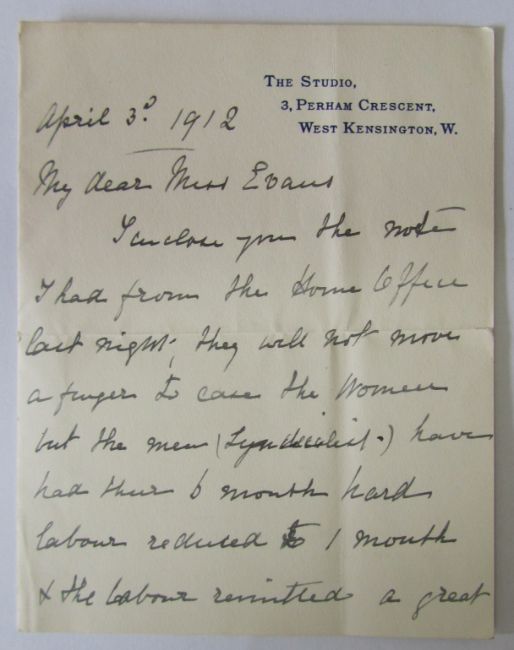 THE STUDIO,
3, PERHAM CRESCENT,
WEST KENSINGTON, W.
April 3d 1912
My dear Miss Evans
I enclose you the note
I had from the Home Office
last night, they will not move
a finger to ease the Women
but the men (Syndicalist.) have
had their 6 month hard
labour reduced to 1 month
& the labour remitted a great